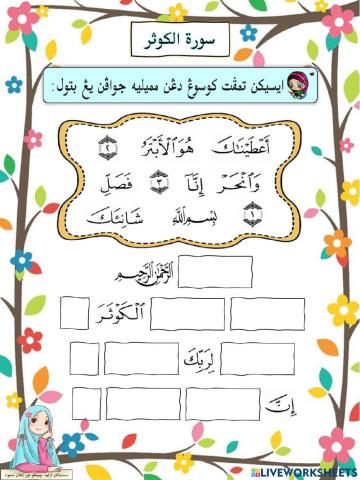 سورة الكوثر
ايسيکن تمڤت كوسوڠ دڠن مميليه جواڤن يڠ بتول :
أَعْطَيْنَاكَ هُوَ الْأَبْتَرُ ٢
وَانْحَرْ إِنَّا ٣ فَصَلِّ
١ بِسْمِ اللَّهِ شَانِئَكَ
الرَّحْمَٰنِ الرَّحِيمِ
الْكَوْثَرَ
لِرَبِّكَ
إِنَّ
LIVEWORKSHEETS